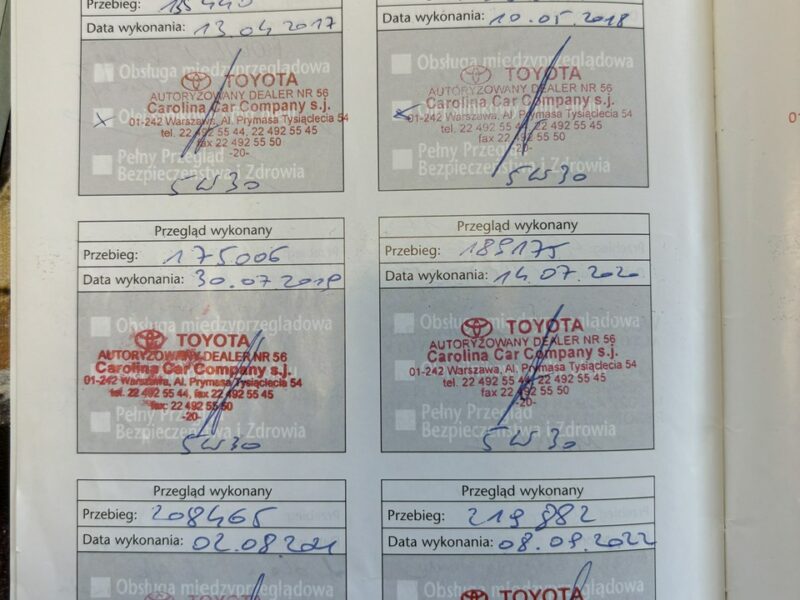 Przebieg: 135440
Data wykonania: 13.04 2017
Obsługa międzyprzeglądowa
TOYOTA
AUTORYZOWANY DEALER NR 56
Carolina Car Company s.j.
01-242 Warszawa, Al. Prymasa Tysiąclecia 54
tel. 22 492 55 44, 22 492 55 45
fax 22 492 55 50
-20-
Pełny Przegląd
Bezpieczeństwa i Zdrowia
5W30
Przebieg:
Data wykonania: 10.05.2018
Obsługa międzyprzeglądowa
TOYOTA
AUTORYZOWANY DEALER NR 56
Carolina Car Company s.j.
01-242 Warszawa, Al. Prymasa Tysiąclecia 54
tel. 22 492 55 44, 22 492 55 45
fax 22 492 55 50
-20-
Pełny Przegląd
Bezpieczeństwa i Zdrowia
5W30
Przegląd wykonany
Przebieg: 175006
Data wykonania: 30.07 2019
Obsługa międzyprzeglądowa
TOYOTA
AUTORYZOWANY DEALER NR 56
Carolina Car Company s.j.
01-242 Warszawa, Al. Prymasa Tysiąclecia 54
tel. 22 492 55 44, fax 22 492 55 45
fax: 22 492 55 50
-20-
Pełny Przegląd
Bezpieczeństwa i Zdrowia
5W30
Przegląd wykonany
Przebieg: 189175
Data wykonania: 14.07.2020
Obsługa międzyprzeglądowa
TOYOTA
AUTORYZOWANY DEALER NR 56
Carolina Car Company s.j.
01-242 Warszawa, Al. Prymasa Tysiąclecia 54
tel. 22 492 55 44, 22 492 55 45
fax 22 492 55 50
-20-
Pełny Przegląd
Bezpieczeństwa i Zdrowia
5W30
Przegląd wykonany
Przebieg: 208465
Data wykonania: 02.08.2021
Obsługa międzyprzeglądowa
TOYOTA
Przegląd wykonany
Przebieg: 219882
Data wykonania: 08.09.2022
Obsługa międzyprzeglądowa
TOYOTA